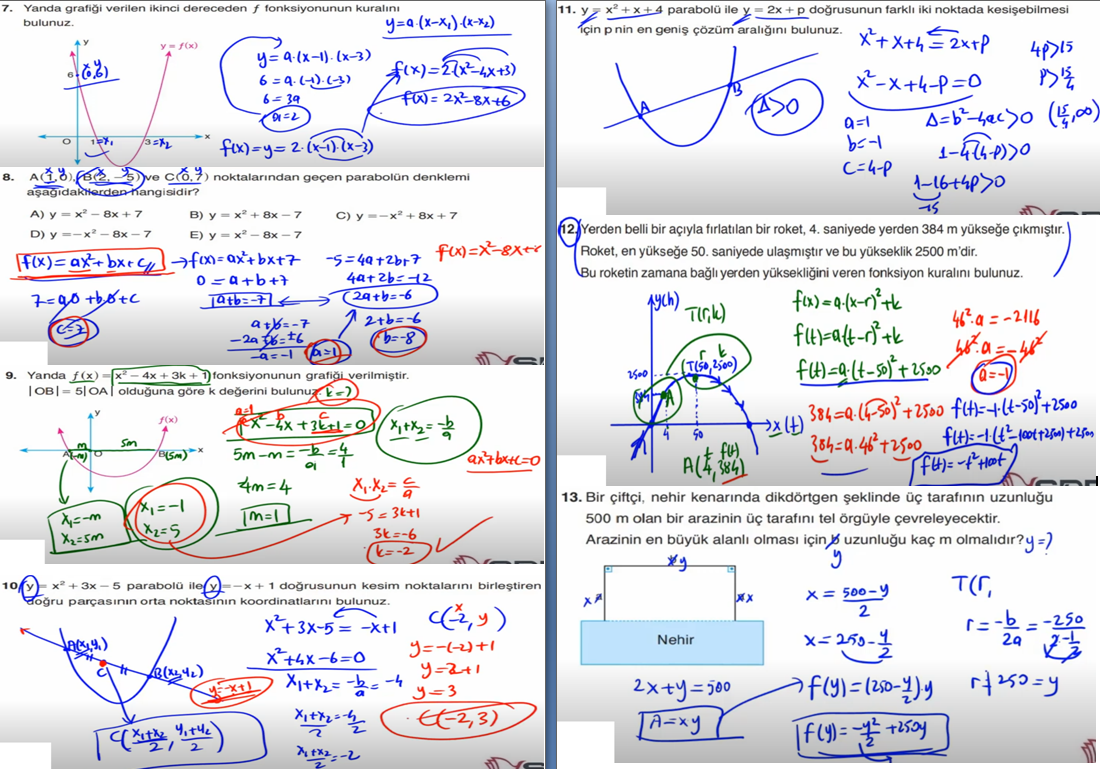 7. Yanda grafiği verilen ikinci dereceden f fonksiyonunun kuralını
bulunuz.
y=a.(x-x₁).(x-x₂)
y
y = f(x)
6
x y
(0,6)
O
1=x₁
3=x₂
x
y=a.(x-1).(x-3)
6=a.(-1).(-3)
6=3a
a=2
f(x)=y=2.(x-1).(x-3)
f(x)=2.(x²-4x+3)
f(x)=2x²-8x+6
8. A(1,0), B(2, -5) ve C(0,7) noktalarından geçen parabolün denklemi
aşağıdakilerden hangisidir?
A) y = x² - 8x + 7 B) y = x² + 8x - 7 C) y = -x² + 8x + 7
D) y = -x² - 8x - 7 E) y = x² - 8x - 7
f(x)=ax²+bx+c
7=a.0+b.0+c
c=7
→f(x)=ax²+bx+7
0=a+b+7
a+b=-7
a+b=-7
-a=-1
a=1
-5=4a+2b+7
4a+2b=-12
2a+b=-6
2+b=-6
b=-8
9. Yanda f(x) = x² - 4x + 3k + 1 fonksiyonunun grafiği verilmiştir.
|OB| = 5|OA| olduğuna göre k değerini bulunuz.
k=?
y
f(x)
m
5m
A(-m)
O
B(5m)
x
x₁=-m
x₂=5m
x₁=-1
x₂=5
a=1 b c
x²-4x+3k+1=0
5m-m=-b/a=4/1
4m=4
m=1
x₁+x₂=-b/a
ax²+bx+c=0
x₁.x₂=c/a
-5=3k+1
3k=-6
k=-2
10. y = x² + 3x - 5 parabolü ile y = -x + 1 doğrusunun kesim noktalarını birleştiren
doğru parçasının orta noktasının koordinatlarını bulunuz.
A(x₁,y₁)
C
B(x₂,y₂)
y=-x+1
C(x₁+x₂/2, y₁+y₂/2)
x²+3x-5=-x+1
x²+4x-6=0
x₁+x₂=-b/a=-4
x₁+x₂/2=-4/2
x₁+x₂/2=-2
C(-2,y)
y=-(-2)+1
y=2+1
y=3
C(-2,3)
11. y = x² + x + 4 parabolü ile y = 2x + p doğrusunun farklı iki noktada kesişebilmesi
için p nin en geniş çözüm aralığını bulunuz.
A
B
Δ>0
x²+x+4=2x+p
x²-x+4-p=0
a=1
b=-1
c=4-p
Δ=b²-4ac>0
1-4(4-p)>0
1-16+4p>0
-15
4p>15
p>15/4
(15/4,∞)
12. Yerden belli bir açıyla fırlatılan bir roket, 4. saniyede yerden 384 m yükseğe çıkmıştır.
Roket, en yükseğe 50. saniyede ulaşmıştır ve bu yükseklik 2500 m'dir.
Bu roketin zamana bağlı yerden yüksekliğini veren fonksiyon kuralını bulunuz.
y(h)
T(r,k)
r k
T(50,2500)
2500
384
A
4
50
x(t)
t f(t)
A(4,384)
f(x)=a.(x-r)²+k
f(t)=a(t-r)²+k
f(t)=a.(t-50)²+2500
384=a.(4-50)²+2500
384=a.46²+2500
46².a=-2116
46².a=-46²
a=-1
f(t)=-1.(t-50)²+2500
f(t)=-1.(t²-100t+2500)+2500
f(t)=-t²+100t
13. Bir çiftçi, nehir kenarında dikdörtgen şeklinde üç tarafının uzunluğu
500 m olan bir arazinin üç tarafını tel örgüyle çevreleyecektir.
Arazinin en büyük alanlı olması için y uzunluğu kaç m olmalıdır? y=?
y
x
x
Nehir
2x+y=500
A=xy
x=500-y/2
x=250-y/2
f(y)=(250-y/2).y
f(y)=-y²/2+250y
T(r,
r=-b/2a=-250
r=250=y